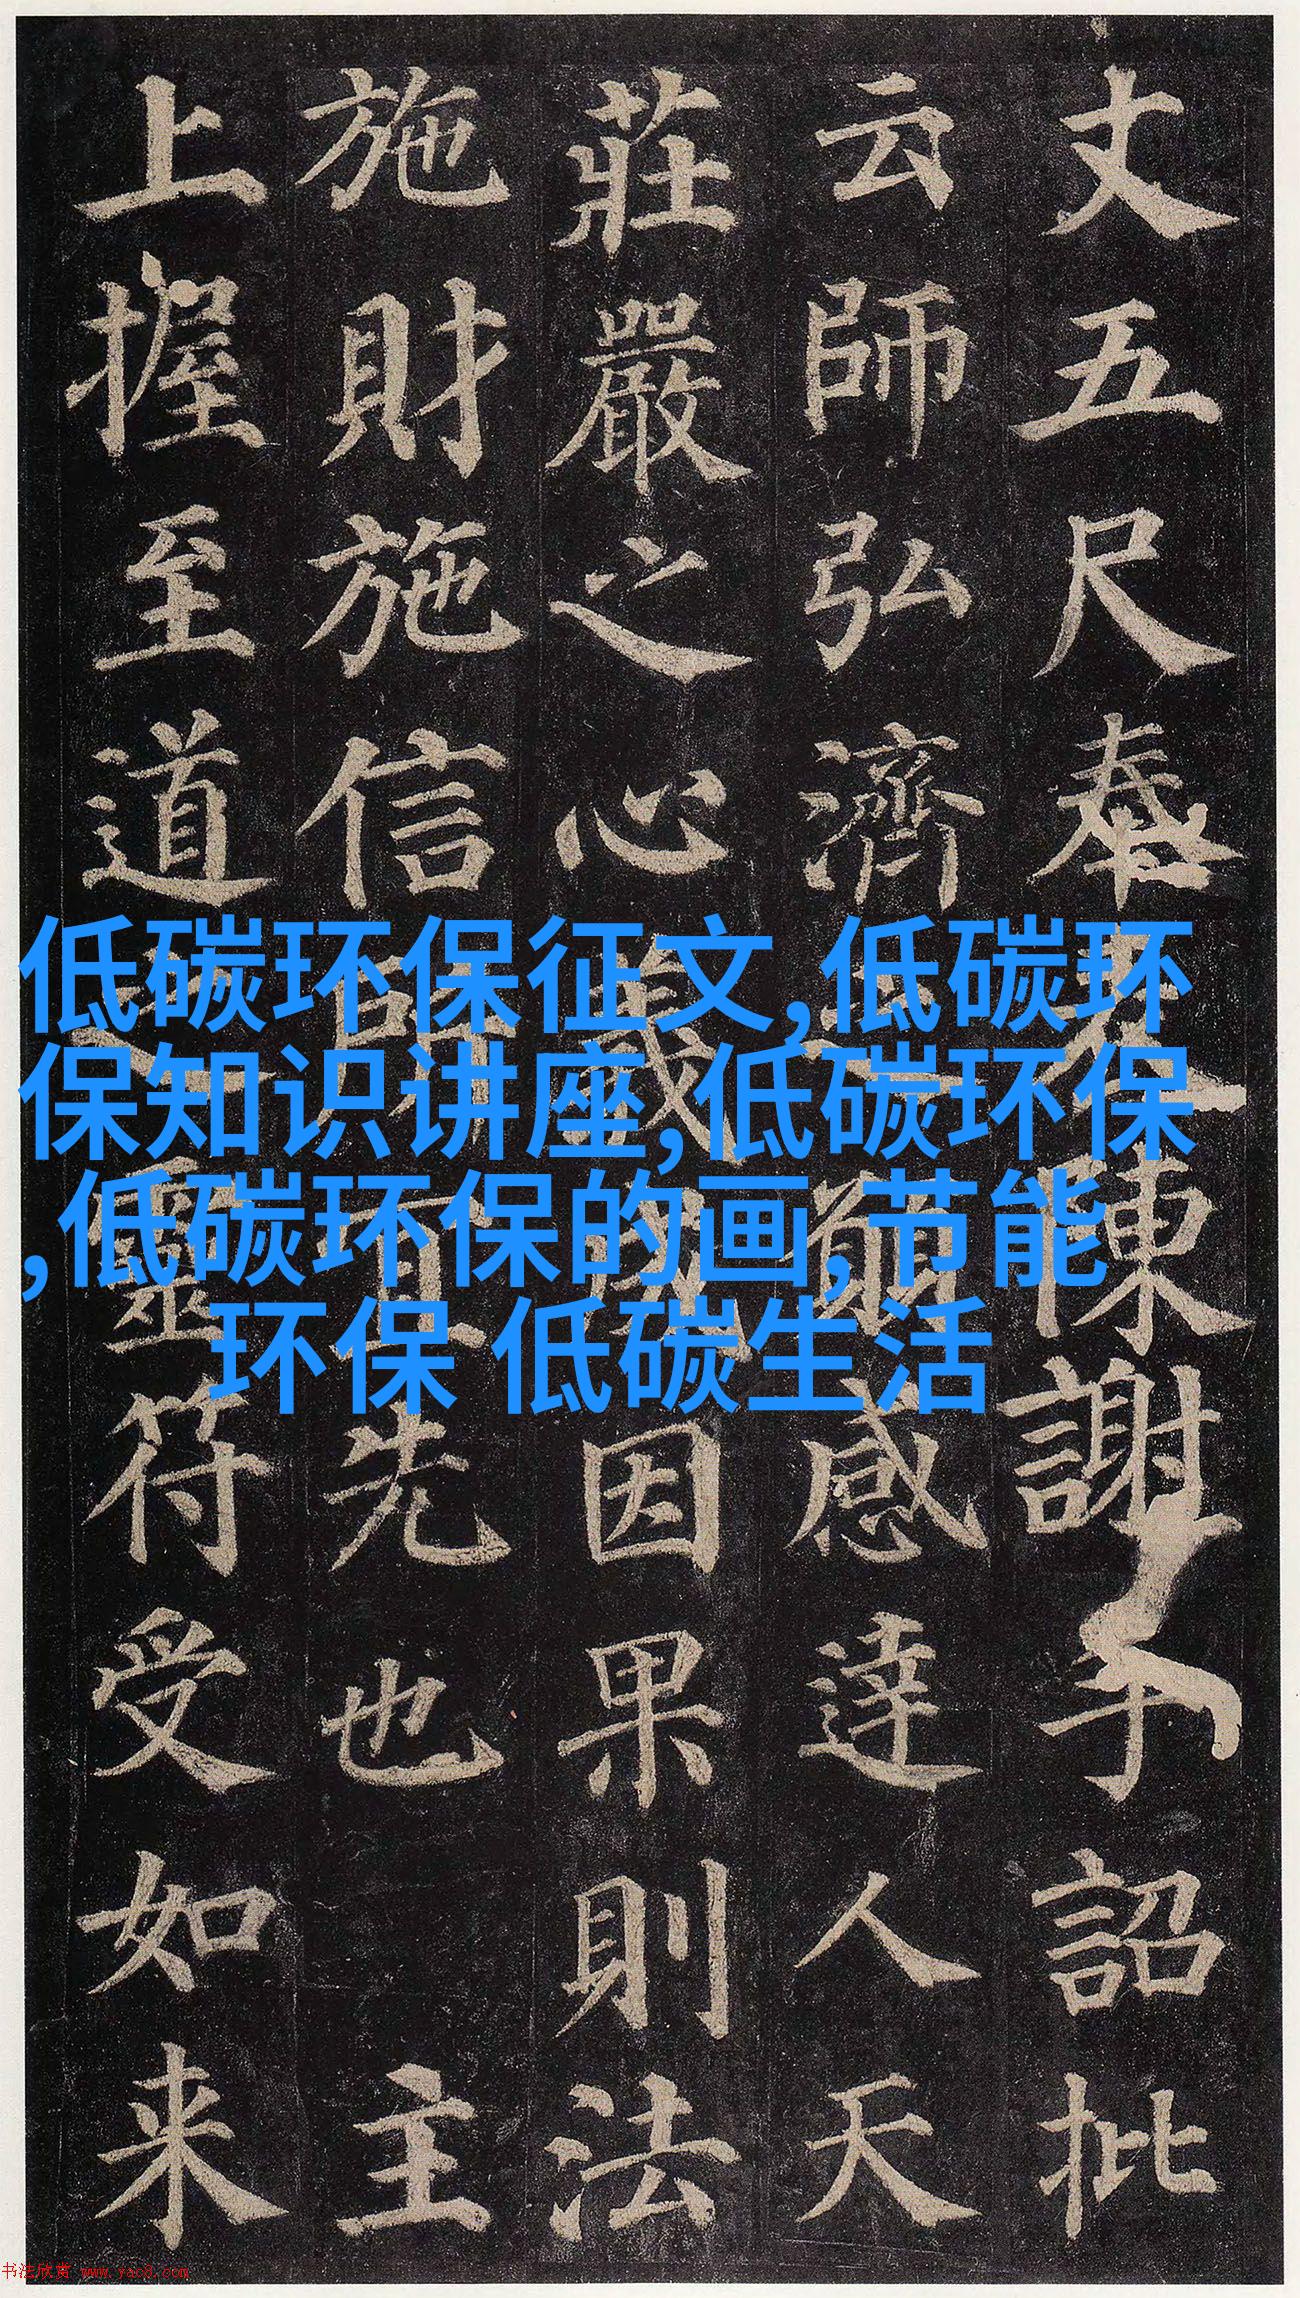 丈五尺奉陳謝手詔批
云師弘濟願感達人天
莊嚴之心因果則法
施財施信所先也 主
上握至道之靈符受如来
低碳环保征文,低碳环
保知识讲座,低碳环保
,低碳环保的画,节能
环保 低碳生活
书法欣赏 www.yac8.com